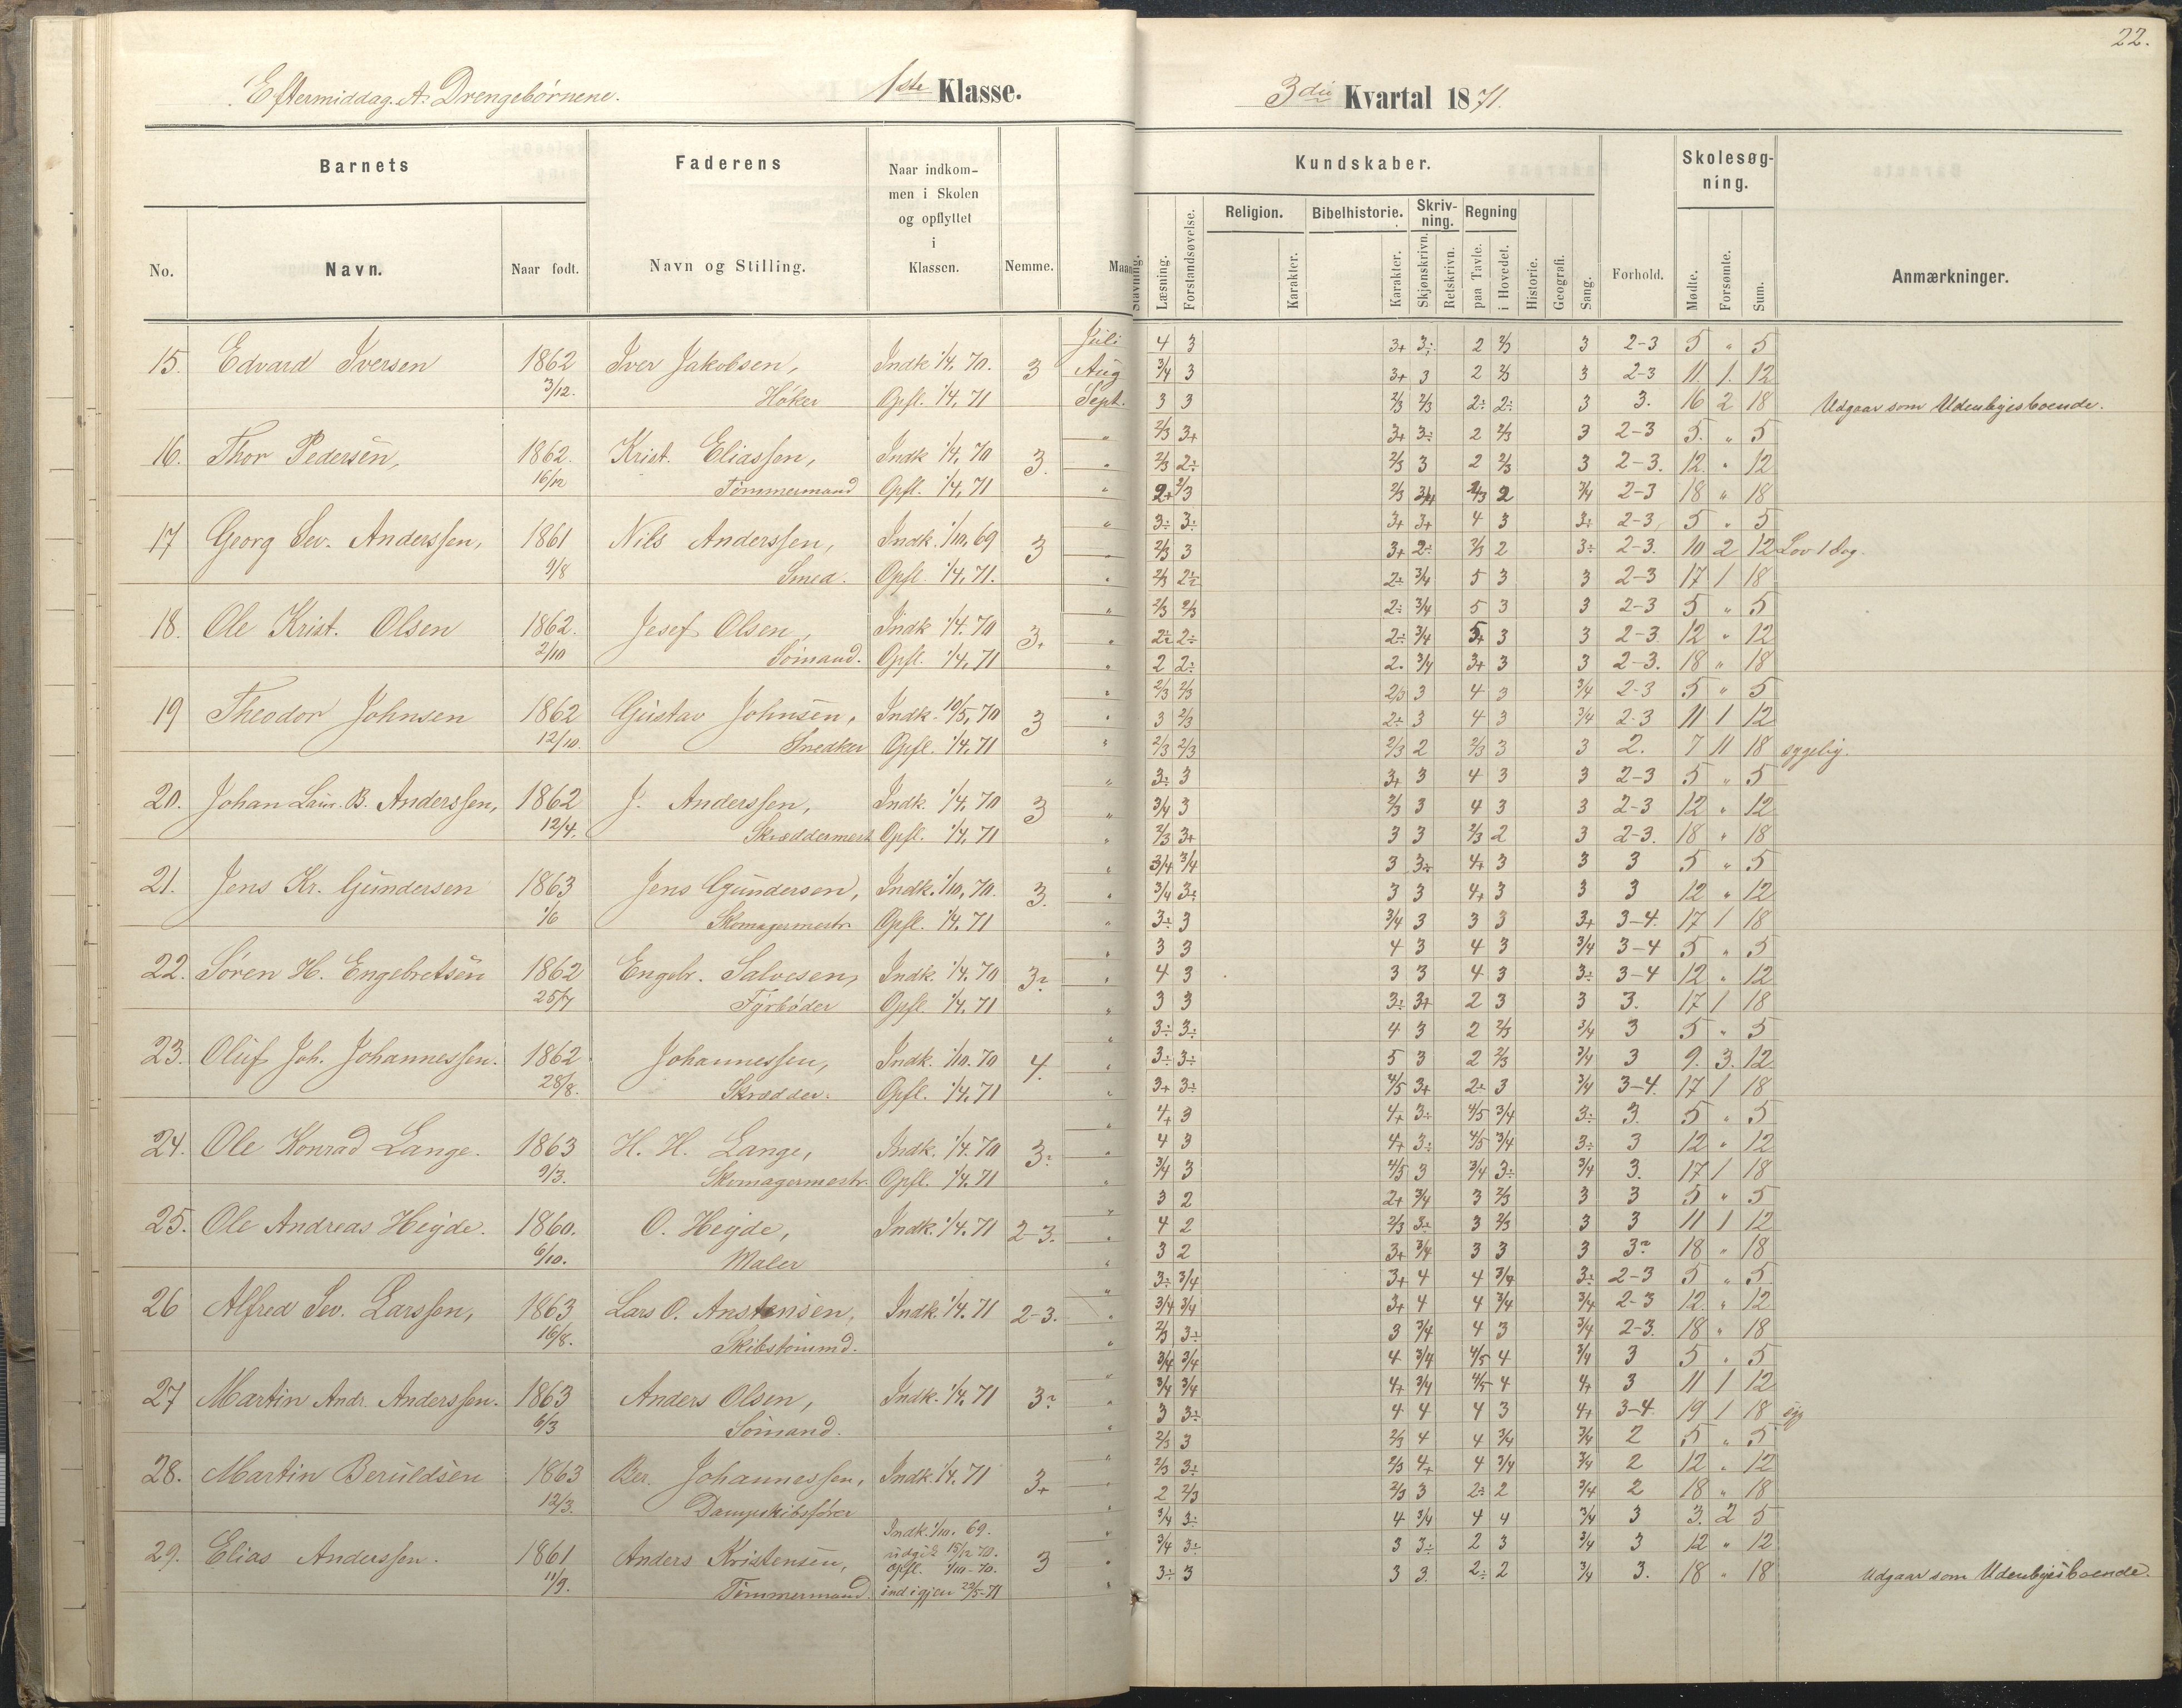 22.
Eftermiddag. A. Drengebørnene. 1ste Klasse. 3die Kvartal 1871.
Barnets Faderens Naar indkommen i Skolen og opflyttet i Klassen. Nemme. Maaned Kundskaber. Skolesøgning.
No. Navn. Naar født. Navn og Stilling. Stavning. Læsning. Forstandsøvelse. Religion. Karakter. Bibelhistorie. Karakter. Skrivning. Skjønskrivn. Retskrivn. Regning paa Tavle. i Hovedet. Historie. Geografi. Sang. Forhold. Mødte. Forsømte. Sum. Anmærkninger.
15. Edvard Iversen 1862 Iver Jakobsen, Indk 1/4. 70. 3 Juli 4 3 3+ 3÷ 2 2/3 3 2-3 5 " 5
Aug 3/4 3 3+ 3 2 2/3 3 2-3 11. 1. 12
3/12. Høker Opfl. 1/4. 71 Sept. 3 3 2/3 2/3 2÷ 2÷ 3 3. 16 2 18 Udgaar som Udenbyesboende.
" 2/3 3+ 3+ 3÷ 2 2/3 3 2-3 5. " 5
16. Thor Pedersen, 1862. Krist. Eliassen, Indk 1/4. 70 3. " 2/3 2÷ 2/3 3 2 2/3 3 2-3. 12. " 12
16/12 Tømmermand Opfl. 1/4. 71 " 2+ 2/3 2/3 3/4 2/3 2 3/4 2-3 18 " 18
" 3÷ 3÷ 3+ 3+ 4 3 3÷ 2-3 5 " 5
17 Georg Sev. Anderssen, 1861 Nils Anderssen, Indk. 1/10. 69 3 " 2/3 3 3+ 2÷ 2/3 2 3÷ 2-3. 10 2 12 Lov 1 dag.
9/8 Smed. Opfl. 1/4. 71. " 2/3 2÷ 2÷ 3/4 5 3 3 2-3 17 1 18
" 2/3 2/3 2÷ 3/4 5 3 3 2-3 5 " 5
18. Ole Krist. Olsen 1862. Josef Olsen, Indk 1/4. 70 3+ " 2÷ 2÷ 2÷ 3/4 5+ 3 3 2-3. 12 " 12
2/10 Sømand. Opfl. 1/4. 71 " 2 2÷ 2. 3/4 3+ 3 3 2-3. 18 " 18
" 2/3 2/3 2/3 3 4 3 3/4 2-3 5 " 5
19 Theodor Johnsen 1862 Gustav Johnsen, Indk. 10/5. 70 3 " 3 2/3 2÷ 3 4 3 3/4 2-3 11 1 12
12/10. Snedker Opfl. 1/4. 71 " 2/3 2/3 2/3 2 2/3 3 3 2. 7 11 18 sygelig.
" 3÷ 3 3+ 3 4 3 3 2-3 5 " 5
20. Johan Lau. B. Anderssen, 1862 J. Anderssen, Indk. 1/4. 70 3 " 3/4 3 2/3 3 4 3 3 2-3 12 " 12
12/4. Skræddermest Opfl. 1/4. 71 " 2/3 3+ 3 3 2/3 2 3 2-3. 18 " 18
" 3/4 3/4 3 3÷ 4+ 3 3 3 5 " 5
21. Jens Kr. Gundersen 1863 Jens Gundersen, Indk. 1/10. 70. 3. " 3/4 3÷ 3 3 4+ 3 3 3 12 " 12
1/6 Skomagermestr Opfl. 1/4. 71 " 3÷ 3 3/4 3 3 3 3+ 3-4. 17 1 18
" 3 3 4 3 4 3 3/4 3-4 5 " 5
22. Søren H. Engebretsen 1862 Engebr. Salvesen, Indk. 1/4. 70 3÷ " 4 3 3 3 4 3 3÷ 3-4 12 " 12
25/7 Fyrbøder Opfl. 1/4. 71 " 3 3 3÷ 3+ 2 3 3 3. 17 1 18
" 3÷ 3÷ 4 3 2 2/3 3/4 3 5 " 5
23. Oluf Joh. Johannessen. 1862 Johannessen, Indk. 1/10. 70 4. " 3÷ 3÷ 5 3 2 2/3 3/4 3 9. 3. 12
28/8. Skrædder. Opfl. 1/4. 71 " 3+ 3÷ 4/5 3+ 2÷ 3 3/4 3-4. 17 1 18
" 4+ 3 4+ 3÷ 4/5 3/4 3÷ 3. 5 " 5
24. Ole Konrad Lange. 1863 H. H. Lange, Indk. 1/4. 70 3÷ " 4 3 4+ 3÷ 4/5 3/4 3÷ 3 12 " 12
9/3. Skomagermestr. Opfl. 1/4. 71 " 3/4 3 4/5 3 3/4 3÷ 3/4 3. 17 1 18
" 3 2 2+ 3/4 3 2/3 3 3 5 " 5
25. Ole Andreas Heyde. 1860. O. Heyde, Indk. 1/4. 71 2-3. " 4 2 2/3 3÷ 3 2/3 3 3 11 1 12
6/10. Maler " 3 2 3+ 3/4 3 3 3 3÷ 18 " 18
" 3÷ 3/4 3+ 4 4 3/4 3÷ 2-3 5 " 5
26 Alfred Sev. Larssen, 1863 Lars O. Anstensen, Indk. 1/4. 71 2-3. " 3/4 3/4 3+ 4 4 3/4 3/4 2-3 12. " 12
16/8. Skibstømmd. " 2/3 3÷ 3 3/4 4 3 3/4 2-3. 18 " 18
" 3/4 3/4 4 3/4 4/5 4 3/4 3 5 " 5
27 Martin Andr. Anderssen. 1863 Anders Olsen, Indk. 1/4. 71 3÷ " 3/4 3/4 4+ 3/4 4/5 4 4+ 3 11 1 12
6/3 Sømand. " 3 3÷ 4 4 4 3 4+ 3-4 19 1 18 syg
" 2/3 3 2/3 4 4 3/4 3/4 2 5 " 5
28. Martin Beruldsen 1863 Ber. Johannessen, Indk. 1/4. 71 3+ " 2/3 3÷ 2/3 4+ 4 3/4 3/4 2 12 " 12
12/3. Dampskibsfører " 2 2/3 2/3 3 2÷ 2 3/4 2 18 " 18
Indk. 1/10. 69. " 3/4 3÷ 4 3/4 4 4 3/4 3 3. 2 5
29. Elias Anderssen. 1861 Anders Kristensen, udgik 15/12 70. opfl. 1/10-70. 3 " 3/4 3÷ 3 3÷ 2 3 3/4 3 12 " 12
11/9. Tømmermand. ind igjen 22/5-71 " 3÷ 3 3 3. 2÷ 2 3/4 3. 18 " 18 Udgaar som Udenbyesboende.